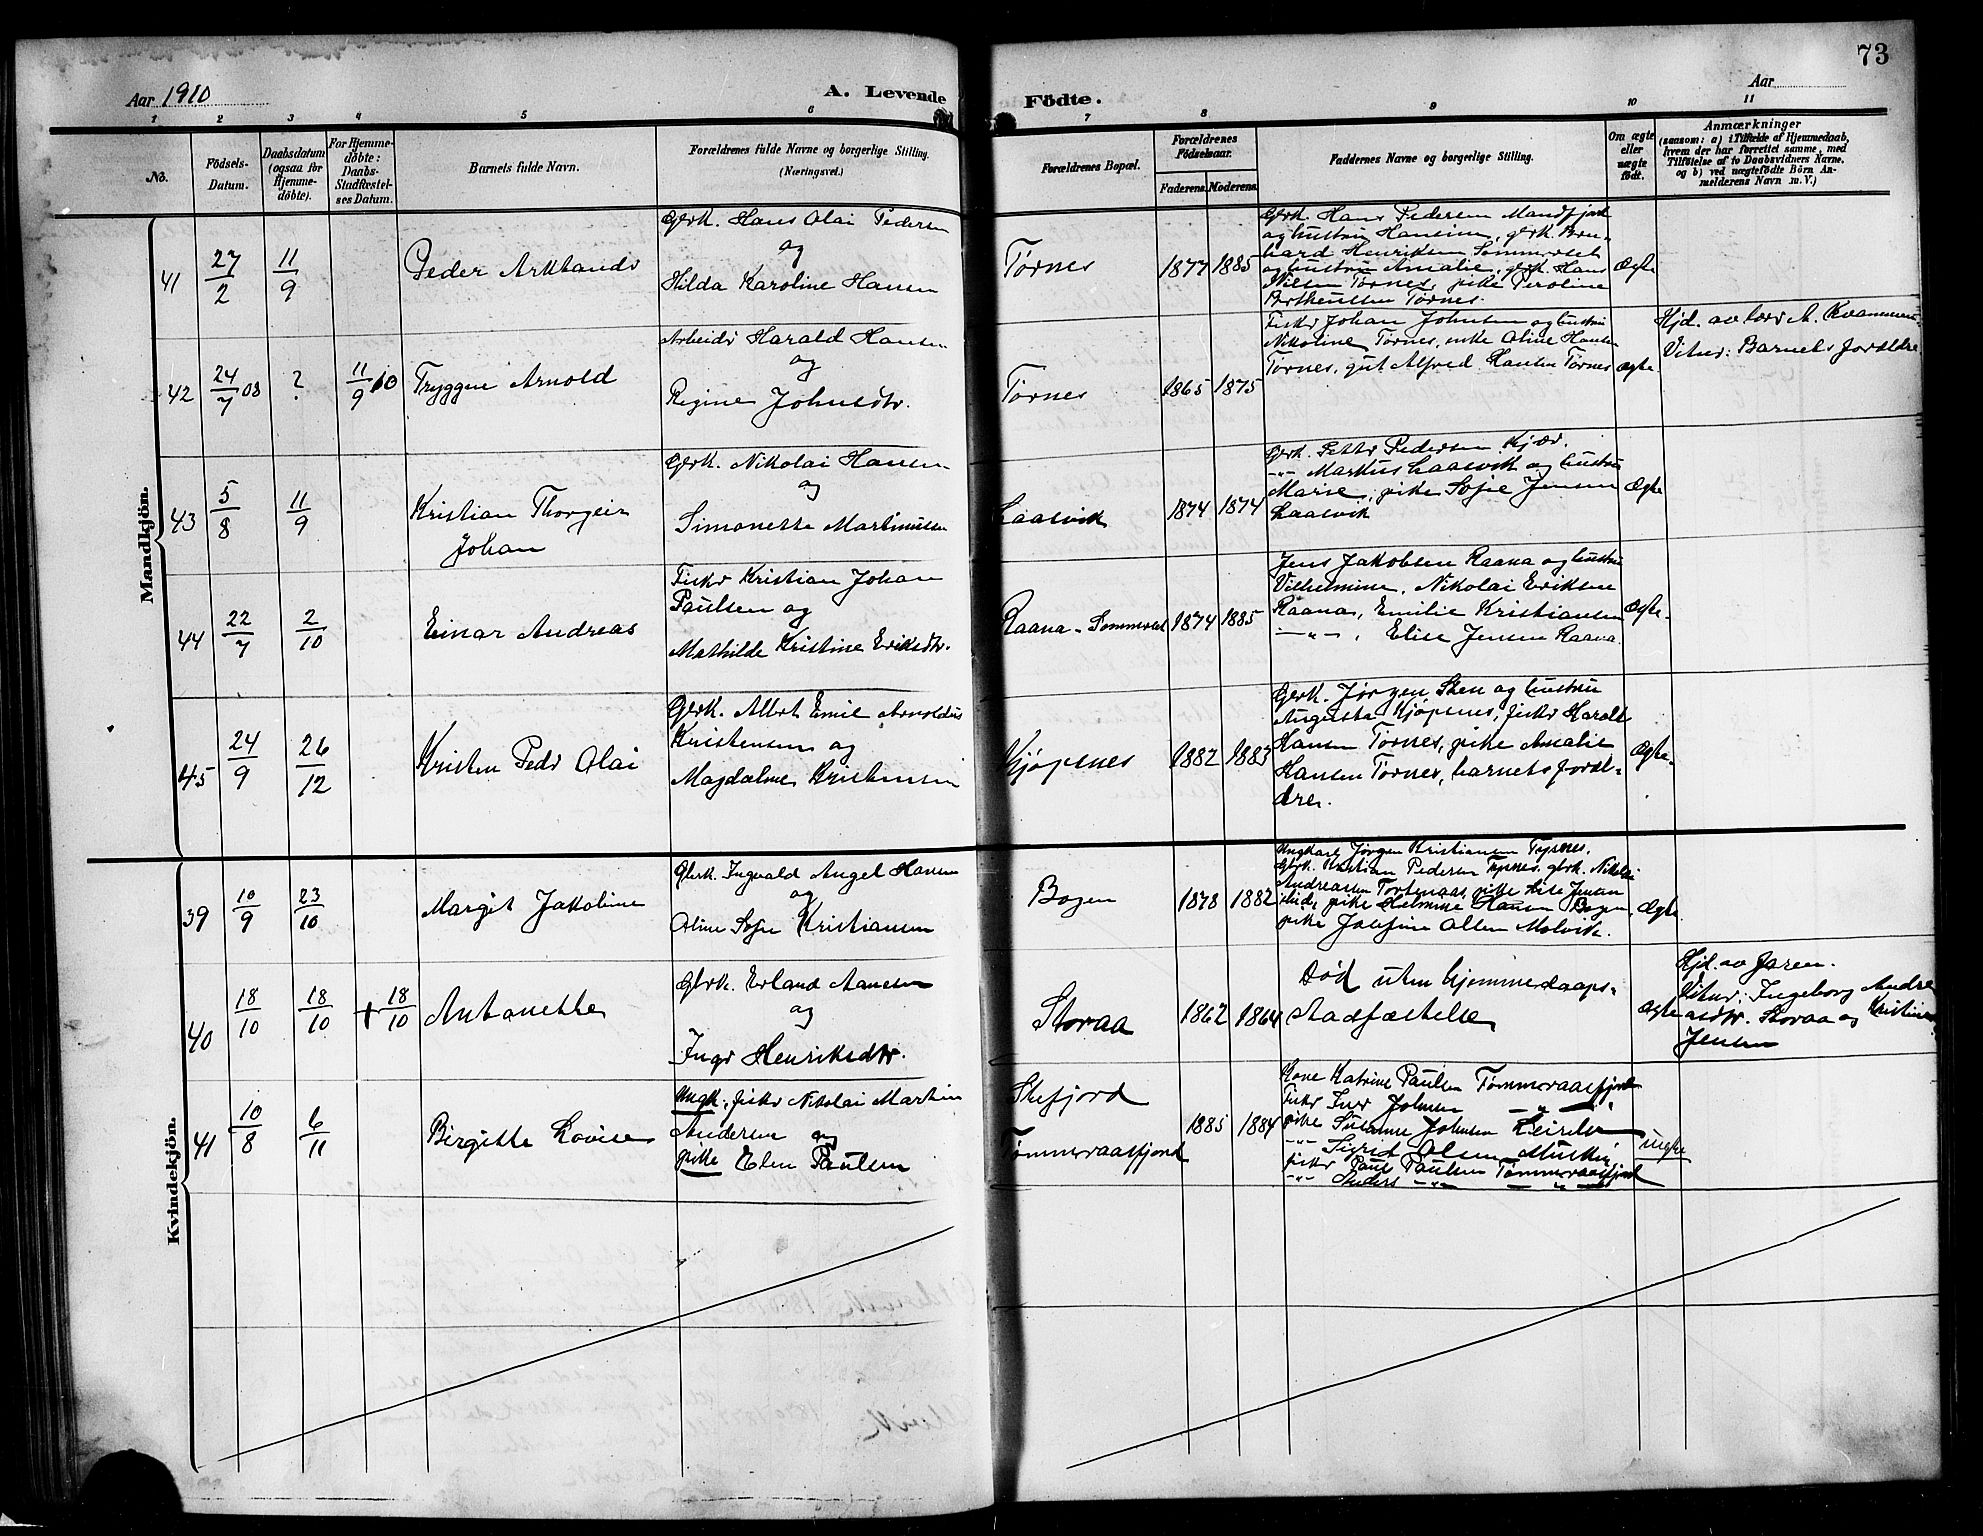 73
Aar 1910
A. Levende Födte.
Aar
1 2 3 4 5 6 7 8 9 10 11
No.
Födsels-
Datum.
Daabsdatum
(ogsaa for
Hjemme-
döbte).
For Hjemme-
döbte:
Daabs-
Stadfæstel-
ses Datum.
Barnets fulde Navn.
Forældrenes fulde Navne og borgerlige Stilling.
(Næringsvei.)
Forældrenes Bopæl.
Forældrenes
Födselsaar.
Faderens. Moderens.
Faddernes Navne og borgerlige Stilling.
Om ægte
eller
uægte
födt.
Anmærkninger
(saasom: a) i Tilfælde af Hjemmedaab,
hvem der har forrettet samme, med
Tilföielse af to Daabsvidners Navne,
og b) ved uægtefödte Börn An-
melderens Navn m. V.)
Mandkjön.
41 27/2 11/9
Gbrk. Hans Olai Pedersen
og
Hilda Karoline Hansen
Tørnes 1877 1885
Gbrk. Hans Pedersen Mandfjord
og hustru Hansine, gbrk. Bern-
hard Henriksen Sommerset
og hustru Amalie, gbrk. Hans
Nilsen Tørnes, pike Peroline
Bertheussen Tørnes.
Ægte
42 24/7 08 ? 11/9 10
Tryggve Arnold
Arbeider Harald Hansen
og
Regine Johnsdtr.
Tørnes 1865 1875
Fisker Johan Johnsen og hustru
Nikoline Tørnes, enke Oline Hansen
Tørnes, gut Alfred Hansen Tørnes
Ægte
Hjd. av lærer A. Kvammen.
Vitner: Barnets forældre
43 5/8 11/9
Kristian Thorgeir
Johan
Gbrk. Nikolai Hansen
og
Simonette Martinussen
Laasvik 1874 1874
Gbrk. Petter Pedersen Kjær.
-"- Markus Laasvik og hustru
Marie, pike Sofie Jensen
Laasvik
Ægte
44 22/7 2/10
Einar Andreas
Fisker Kristian Johan
Paulsen og
Mathilde Kristine Eriksdtr.
Raana - Sommerset 1874 1885
Jens Jakobsen Raana og hustru
Vilhelmine, Nikolai Eriksen
Raana, Emilie Kristiansen
-"-, Elise Jensen Raana.
Ægte.
45 24/9 26/12
Kristen Peder Olai
Gbrk. Albert Emil Arnoldus
Kristensen og
Magdalene Kristensen
Kjøpsnes 1882 1883
Gbrk. Jørgen Steen og hustru
Augusta Kjøpsnes, fisker Harald
Hansen Tørnes, pike Amalie
Hansen Tørnes, barnets foræl-
dre.
Ægte.
Kvindekjön.
39 10/9 23/10
Margit Jakobine
Gbrk. Ingvald Angel Hansen
og
Oline Sofie Kristiansen
Bogen 1878 1882
Ungkarl Jørgen Kristiansen Tysnes.
Gbrk. Kristian Pedersen Tysnes, gbrk. Nikolai
Andreassen pike Lise Jensen
pike Helmine Hansen Bogen,
pike Josefine Olsen Molvik.
Ægte
40 18/10 18/10 + 18/10
Antonette
Gbrk. Erland Aanesen
og
Inger Henriksdtr.
Storaa 1862 1864
Død uten hjemmedaaps-
stadfæstelse
Ægte
Hjd. av faren.
Vitner: Ingeborg Andre
asdtr. Storaa og Kristine
Jensen
41 10/8 6/11
Birgitte Lovise
Ungk. fisker Nikolai Martin
Andersen og
pike Elen Paulsen
Stefjord
Tømmeraasfjord
1885 1884
Kone Katrine Paulsen Tømmeraasfjord
Fisker Iver Johnsen -"-
pike Susanne Johnsen
-"- Sigrid Olsen Musken
fisker Paul Paulsen Tømmeraasfjord
-"- Anders -"- -"-
uægte